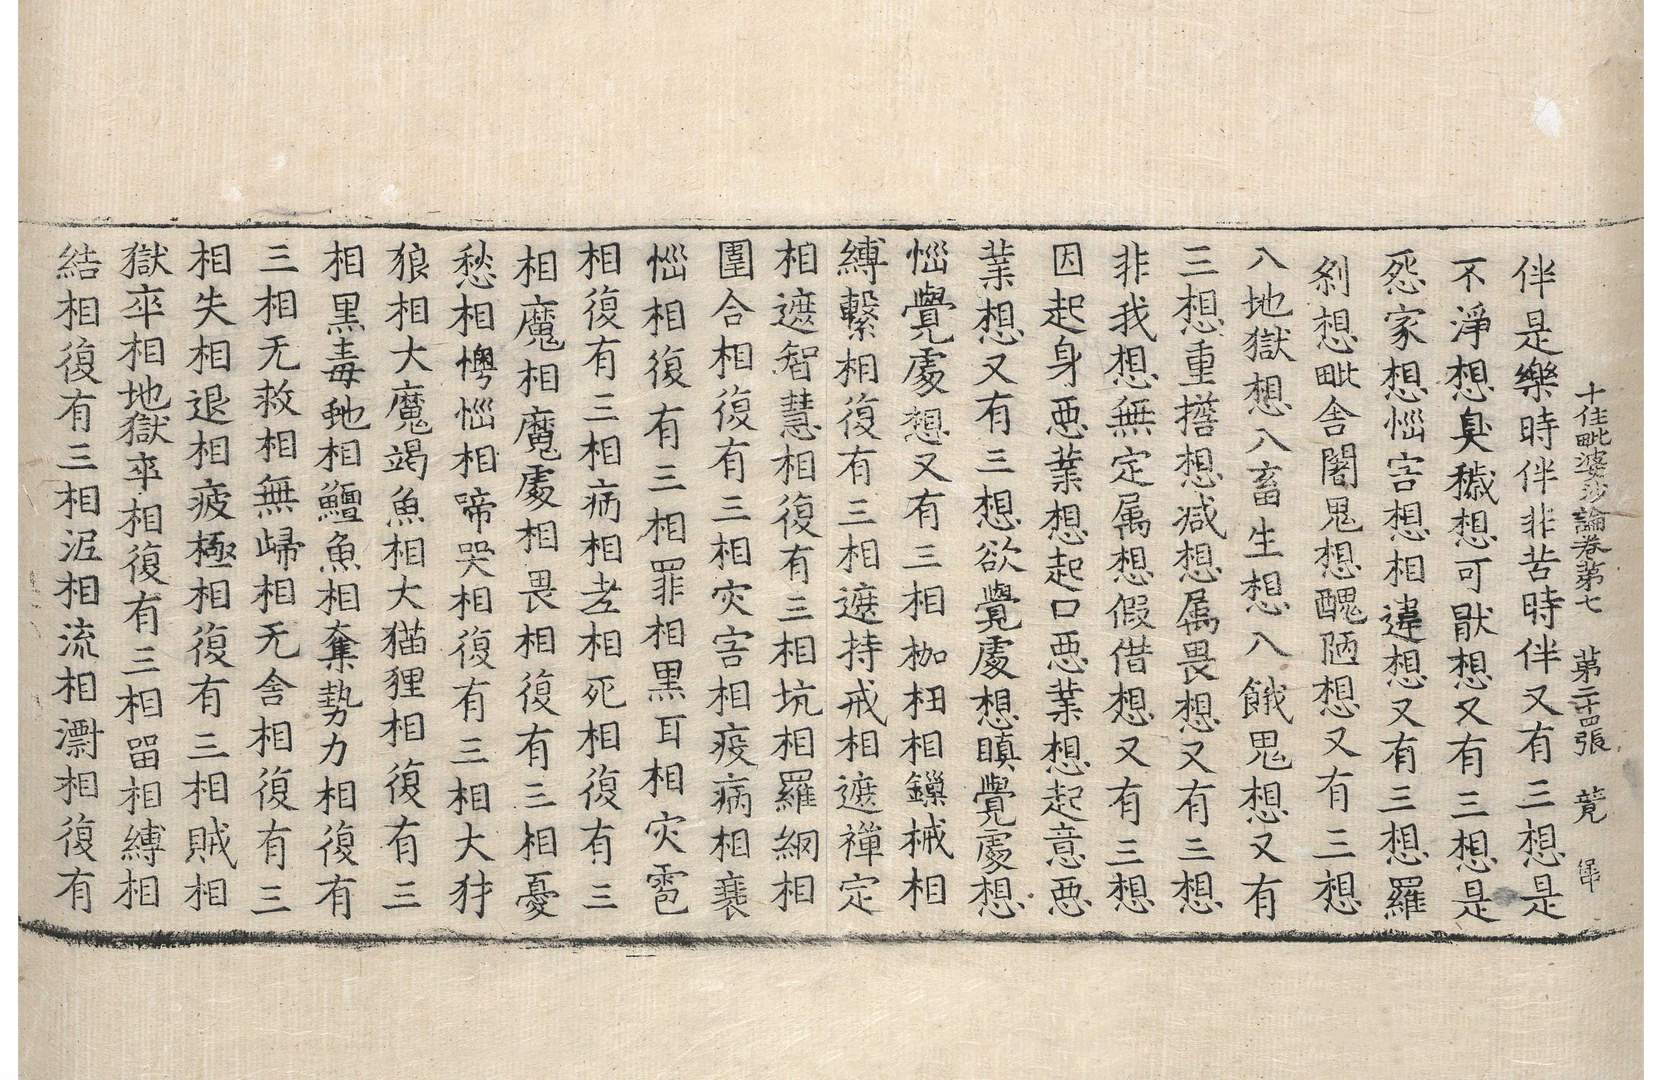 十住毗婆沙論卷第七 第二十四張 竟
伴是樂時伴非苦時伴又有三想是
不淨想臭穢想可猒想又有三想是
怨家想惱害想相違想又有三想羅
剎想毗舍闍鬼想醜陋想又有三想
八地獄想八畜生想八餓鬼想又有
三想重擔想減想属畏想又有三想
非我想無定属想假借想又有三想
因起身惡業想起口惡業想起意惡
業想又有三想欲覺處想瞋覺處想
惱覺處想又有三相枷杻相鏁械相
縛繫相復有三相遮持戒相遮禪定
相遮智慧相復有三相坑相羅網相
圍合相復有三相灾害相疫病相衰
惱相復有三相罪相黑耳相灾雹
相復有三相病相老相死相復有三
相魔相魔處相畏相復有三相憂
愁相懊惱相啼哭相復有三相大犲
狼相大魔竭魚相大猫狸相復有三
相黑毒虵相鱣魚相奪勢力相復有
三相无救相無歸相无舍相復有三
相失相退相疲極相復有三相賊相
獄卒相地獄卒相復有三相留相縛相
結相復有三相泥相流相漂相復有